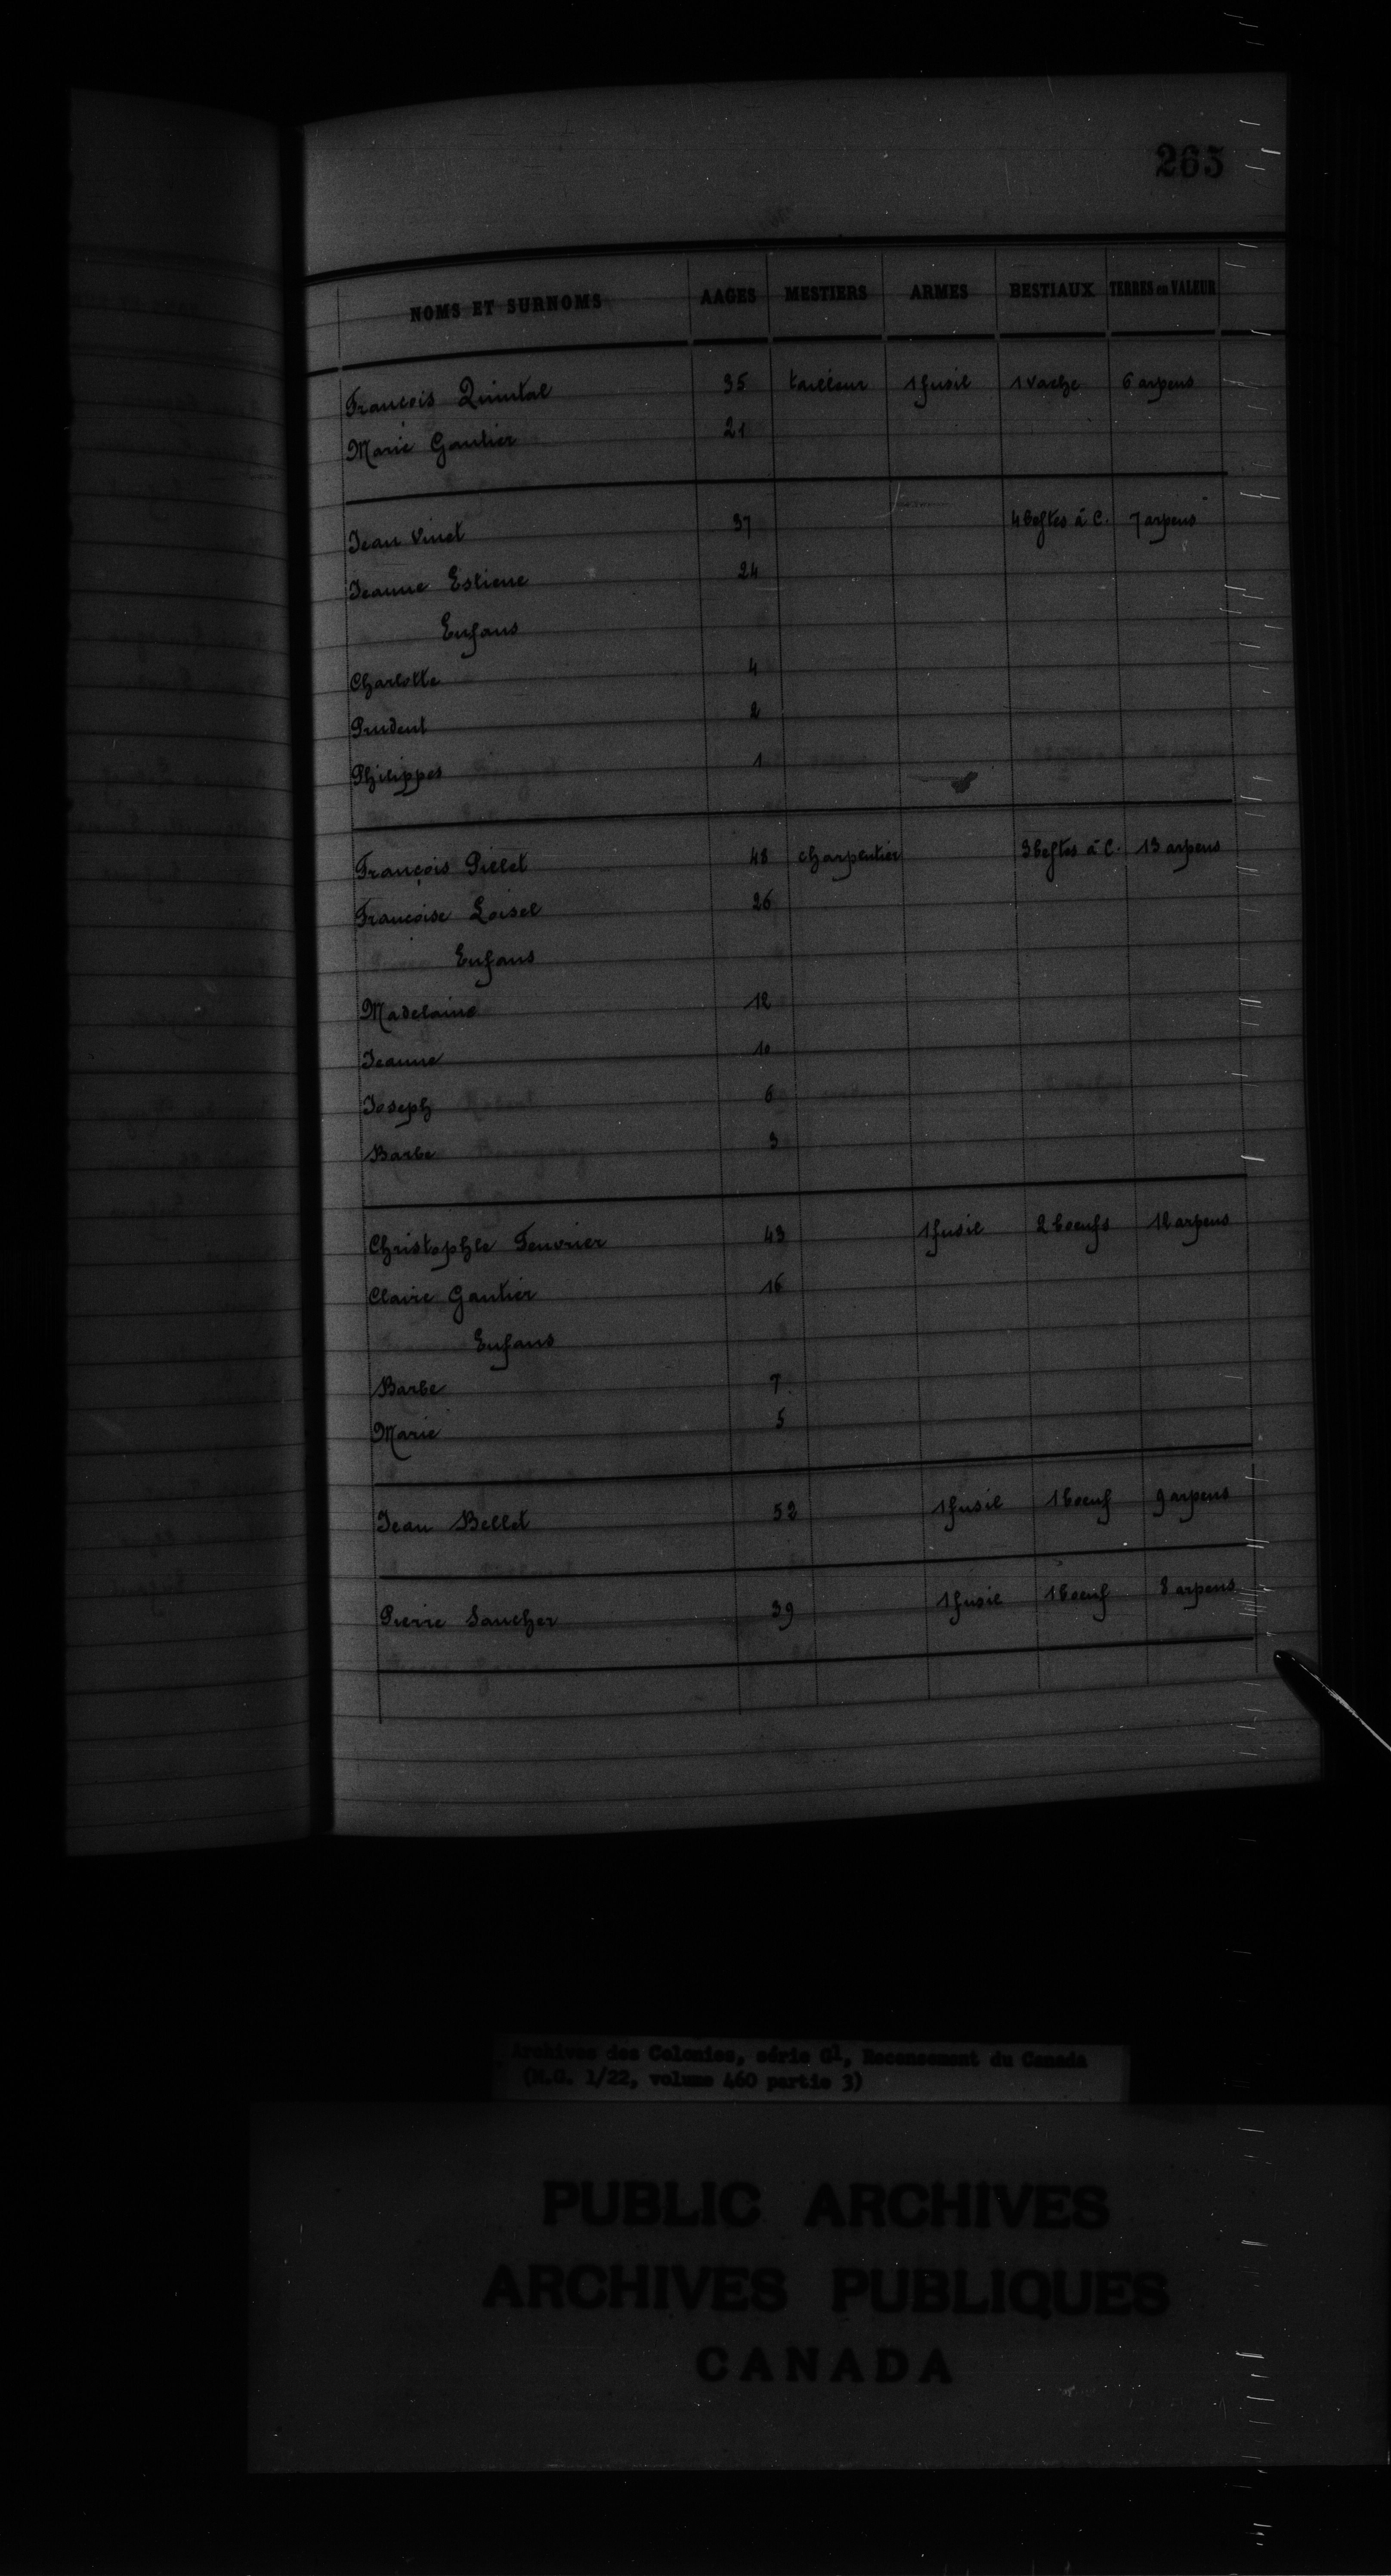 265
NOMS ET SURNOMS AAGES MESTIERS ARMES BESTIAUX TERRES en VALEUR
François Quintal 35 tailleur 1 fusil 1 vache 6 arpens
Marie Gautier 21
Jean Vinet 37 4 bestes à C. 7 arpens
Jeanne Estiene 24
Enfans
Charlotte 4
Prudent 2
Philippes 1
François Pillet 48 charpentier 3 bestes à C. 13 arpens
Françoise Loisel 26
Enfans
Madelaine 12
Jeanne 10
Joseph 6
Barbe 3
Christophle Feuvrier 43 1 fusil 2 boeufs 12 arpens
Claire Gautier 16
Enfans
Barbe 7
Marie 5
Jean Bellet 52 1 fusil 1 boeuf 9 arpens
Pierre Saucher 39 1 fusil 1 boeuf 8 arpens
Archives des Colonies, série G1, Recensement du Canada
(M.G. 1/22, volume 460 partie 3)
PUBLIC ARCHIVES
ARCHIVES PUBLIQUES
CANADA